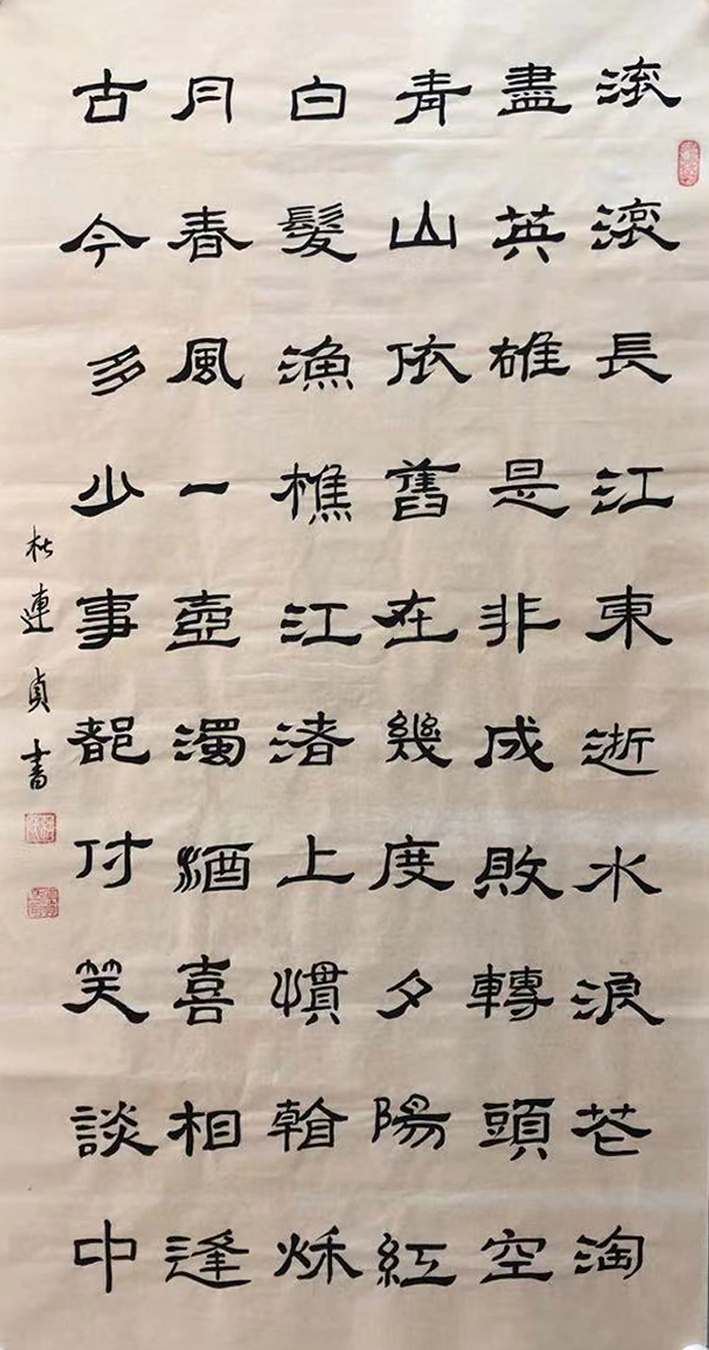 滚滚長江東逝水浪花淘
盡英雄是非成敗轉頭空
青山依舊在幾度夕陽紅
白髮漁樵江渚上慣看秌
月春風一壺濁酒喜相逢
古今多少事都付笑談中
杜連貞書